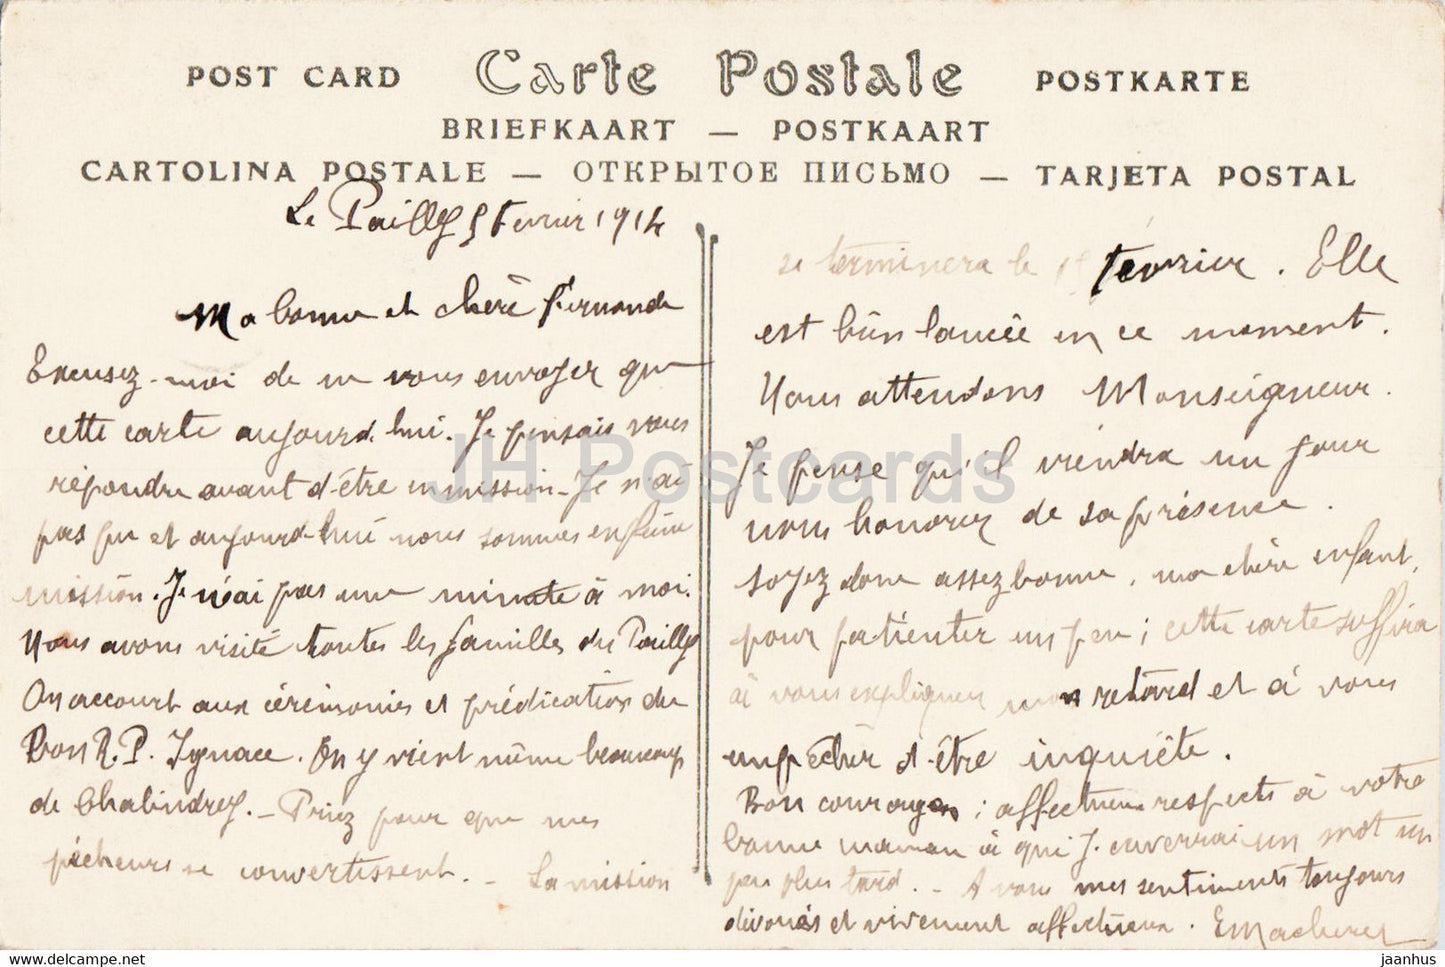 POST CARD Carte Postale POSTKARTE
BRIEFKAART — POSTKAART
CARTOLINA POSTALE — ОТКРЫТОЕ ПИСЬМО — TARJETA POSTAL
Le Pailly 5 février 1914
Ma bonne et chère Fernande
Excusez-moi de ne vous envoyer que
cette carte aujourd'hui. Je pensais vous
répondre avant d'être en mission - Je n'ai
pas pu et aujourd'hui nous sommes en pleine
mission. Je n'ai pas une minute à moi.
Nous avons visité toutes les familles du Pailly
On accourt aux cérémonies et prédication du
Bon R.P. Ignace. On y vient même beaucoup
de Chalindrey. - Priez pour que mes
pécheurs se convertissent. - La mission
se terminera le février. Elle
est bien lancée en ce moment.
Nous attendons Monseigneur.
Je pense qu'il viendra un jour
nous honorer de sa présence.
Soyez donc assez bonne, ma chère enfant,
pour patienter un peu ; cette carte suffira
à vous expliquer mon retard et à vous
empêcher d'être inquiète.
Bon courage ; affectueux respects à votre
bonne maman à qui j'enverrai un mot un
peu plus tard. - A vous mes sentiments toujours
dévoués et vivement affectueux.
JH Postcards
jaanhus